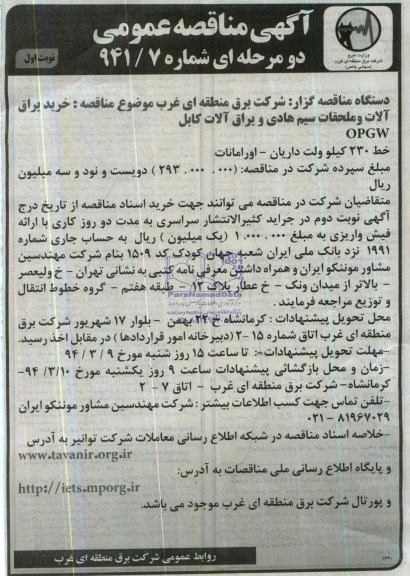 آگهی مناقصه عمومی
دو مرحله ای شماره ۹۴۱/۷
نوبت اول
وزارت نیرو
شرکت برق منطقه ای غرب
(سهامی خاص)
دستگاه مناقصه گزار: شرکت برق منطقه ای غرب موضوع مناقصه : خرید یراق
آلات وملحقات سیم هادی و یراق آلات کابل
OPGW
خط ۲۳۰ کیلو ولت داریان - اورامانات
مبلغ سپرده شرکت در مناقصه: (۲۹۳.۰۰۰.۰۰۰) دویست و نود و سه میلیون
ریال
متقاضیان شرکت در مناقصه می توانند جهت خرید اسناد مناقصه از تاریخ درج
آگهی نوبت دوم در جراید کثیرالانتشار سراسری به مدت دو روز کاری با ارائه
فیش واریزی به مبلغ ۱.۰۰۰.۰۰۰ (یک میلیون) ریال به حساب جاری شماره
۱۹۹۱ نزد بانک ملی ایران شعبه جهان کودک کد ۱۵۰۹ بنام شرکت مهندسین
مشاور موننکو ایران و همراه داشتن معرفی نامه کتبی به نشانی تهران - خ ولیعصر
- بالاتر از میدان ونک - خ عطار پلاک ۱۲ - طبقه هفتم - گروه خطوط انتقال
و توزیع مراجعه فرمایند.
محل تحویل پیشنهادات : کرمانشاه خ ۲۲ بهمن - بلوار ۱۷ شهریور شرکت برق
منطقه ای غرب اتاق شماره ۱۵-۲ (دبیرخانه امور قراردادها) در مقابل اخذ رسید.
-مهلت تحویل پیشنهادات-: تا ساعت ۱۵ روز شنبه مورخ ۹ / ۳ / ۹۴
-زمان و محل بازگشائی پیشنهادات ساعت ۹ روز یکشنبه مورخ ۳/۱۰/ ۹۴-
کرمانشاه- شرکت برق منطقه ای غرب - اتاق ۷ - ۲
-تلفن تماس جهت کسب اطلاعات بیشتر : شرکت مهندسین مشاور موننکو ایران
۰۲۱ - ۸۱۹۶۷۰۲۹
-خلاصه اسناد مناقصه در شبکه اطلاع رسانی معاملات شرکت توانیر به آدرس
www.tavanir.org.ir
و پایگاه اطلاع رسانی ملی مناقصات به آدرس:
http://iets.mporg.ir
و پورتال شرکت برق منطقه ای غرب موجود می باشد.
روابط عمومی شرکت برق منطقه ای غرب
ParsNamadData